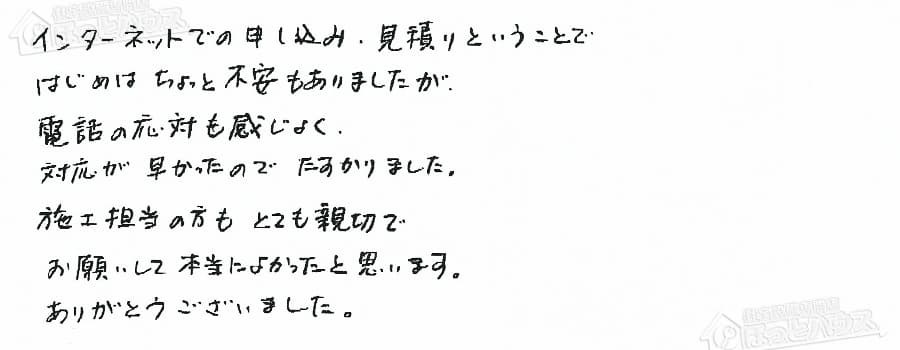 インターネットでの申し込み、見積りということで
はじめは ちょっと不安もありましたが、
電話の応対も感じよく、
対応が早かったので たすかりました。
施工担当の方も とても親切で
お願いして本当によかったと思います。
ありがとうございました。